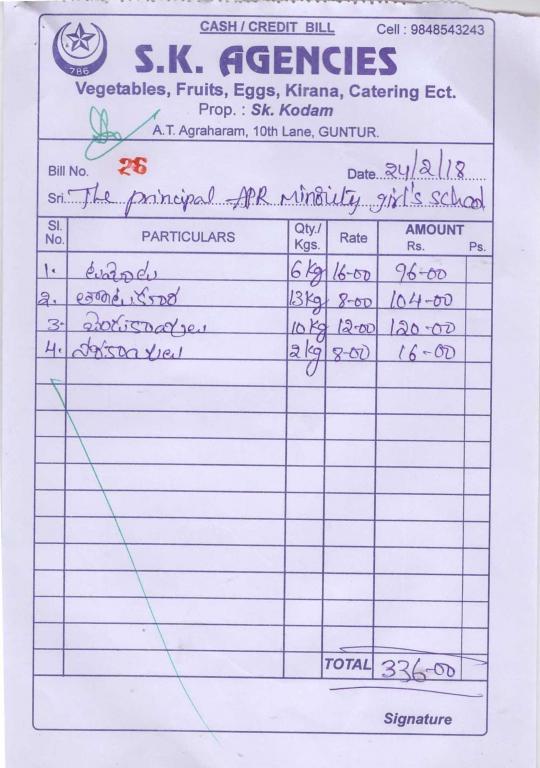 CASH / CREDIT BILL
Cell : 9848543243
786
S.K. AGENCIES
Vegetables, Fruits, Eggs, Kirana, Catering Ect.
Prop. : Sk. Kodam
A.T. Agraharam, 10th Lane, GUNTUR.
Bill No. 26 Date 24/2/18
Sri. The principal APR Minority girl's school
Sl. No. PARTICULARS Qty./ Kgs. Rate AMOUNT Rs. Ps.
1. టమాటాలు 6kg 16-00 96-00
2. 13kg 8-00 104-00
3. 10kg 12-00 120-00
4. 2kg 8-00 16-00
TOTAL 336-00
Signature